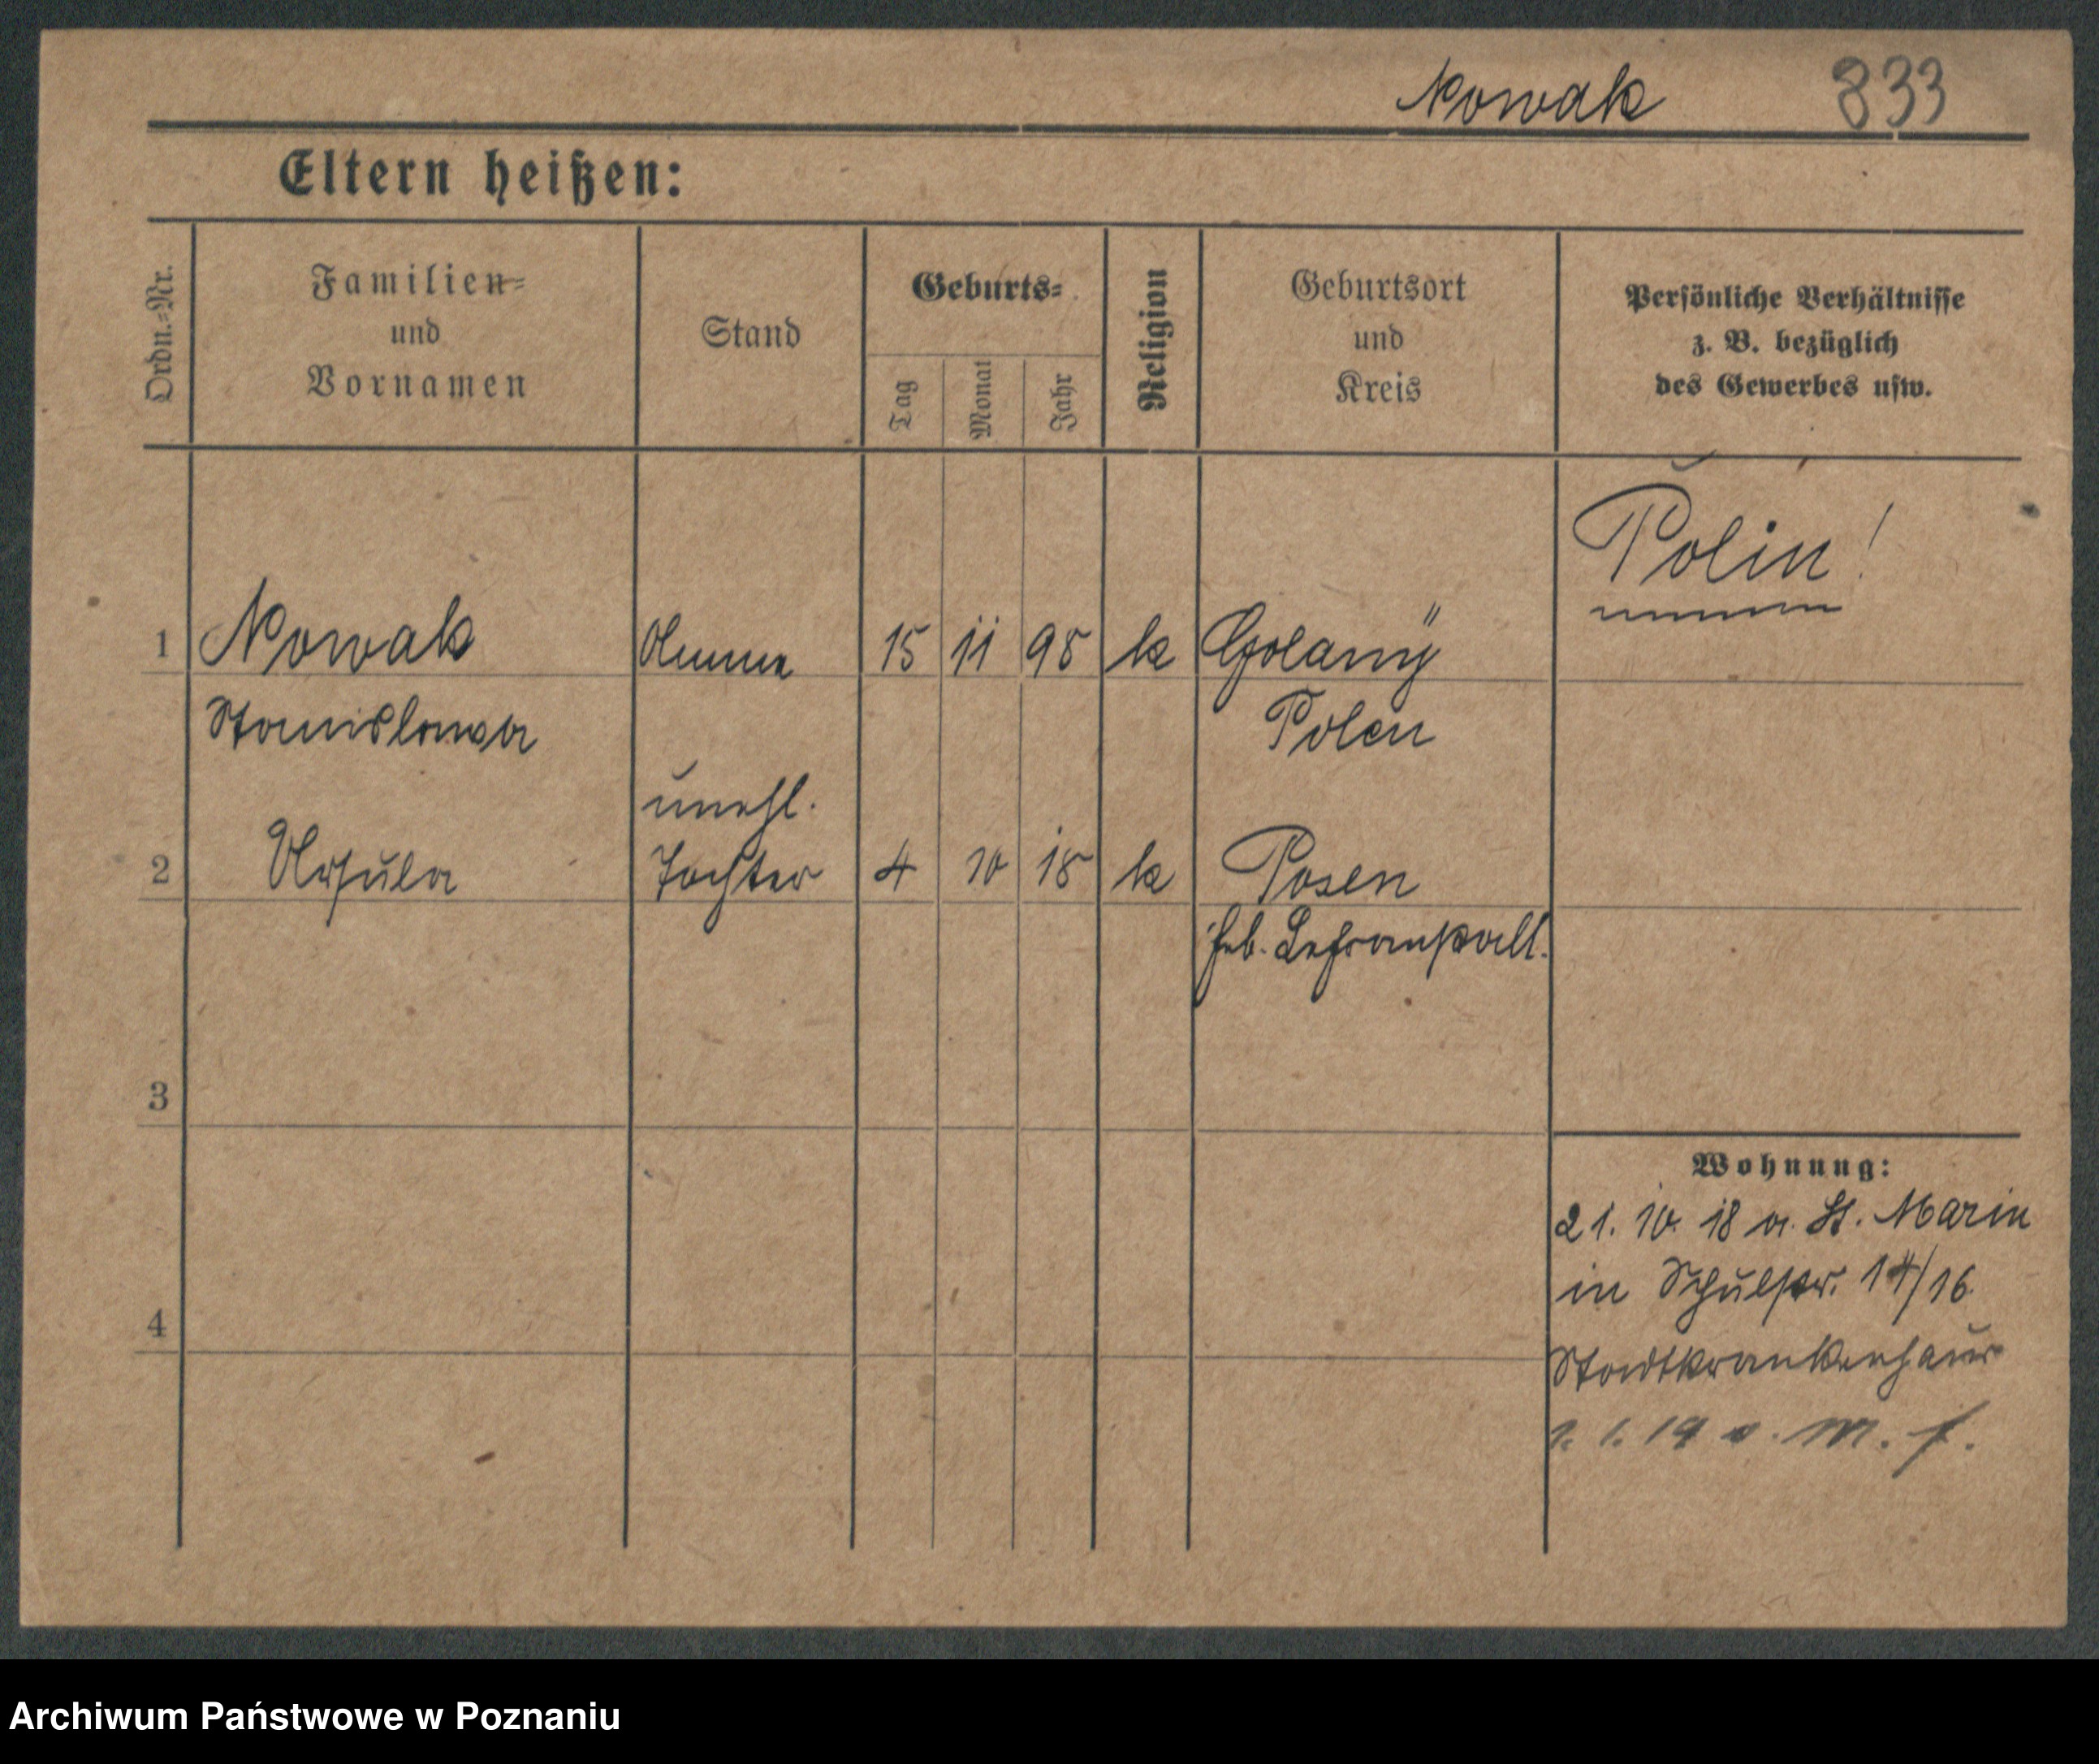 Nowak 833
Eltern heißen:
Ordn.-Nr.
Familien-
und
Vornamen
Stand
Geburts-
Tag
Monat
Jahr
Religion
Geburtsort
und
Kreis
Persönliche Verhältnisse
z. B. bezüglich
des Gewerbes usw.
Polin!
1 Nowak Amme 15 11 98 k Golany
Stanislawa Polen
unehl.
2 Ursula Tochter 4 10 18 k Posen
Heb. Lehranstalt.
3
Wohnung:
21. 10. 18 a. St. Marin
in Schulstr. 14/16
4
Stadtkrankenhaus
1. 1. 19
Archiwum Państwowe w Poznaniu